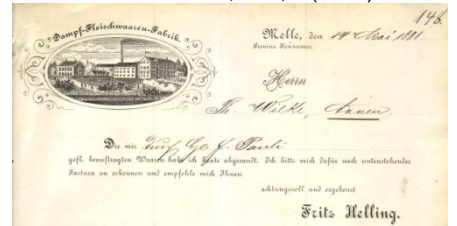 148.
Dampf-Fleischwaaren-Fabrik.
Melle, den 19 Mai 1881
Provinz Hannover.
Herrn
Th. Wilke, Annen.
Die mir durch
gefl. beauftragten Waaren habe ich heute abgesandt. Ich bitte mich dafür nach untenstehender
Factura zu erkennen und empfehle mich Ihnen
achtungsvoll und ergebenst
Fritz Helling.